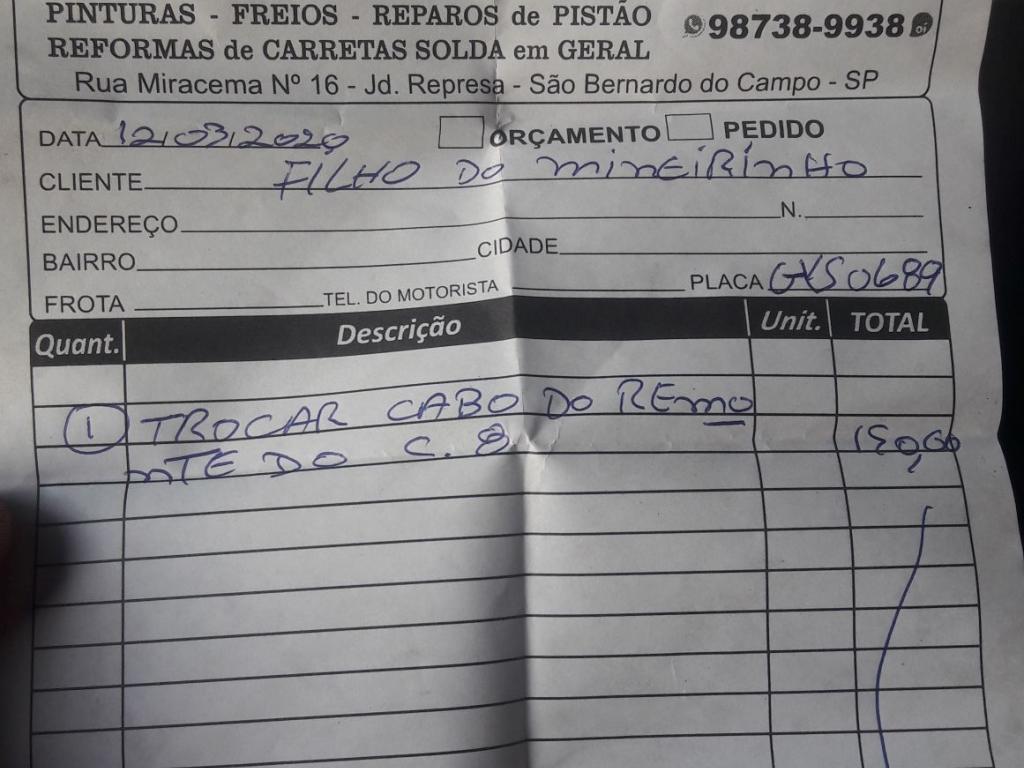 PINTURAS - FREIOS - REPAROS de PISTÃO
REFORMAS de CARRETAS SOLDA em GERAL
98738-9938
Rua Miracema Nº 16 - Jd. Represa - São Bernardo do Campo - SP
DATA 12/03/2020 ORÇAMENTO PEDIDO
CLIENTE FILHO DO MINEIRINHO
ENDEREÇO N.
BAIRRO CIDADE
FROTA TEL. DO MOTORISTA PLACA GXS0689
Quant. Descrição Unit. TOTAL
1 TROCAR CABO DO REMO
MTE DO C. 8 150,00